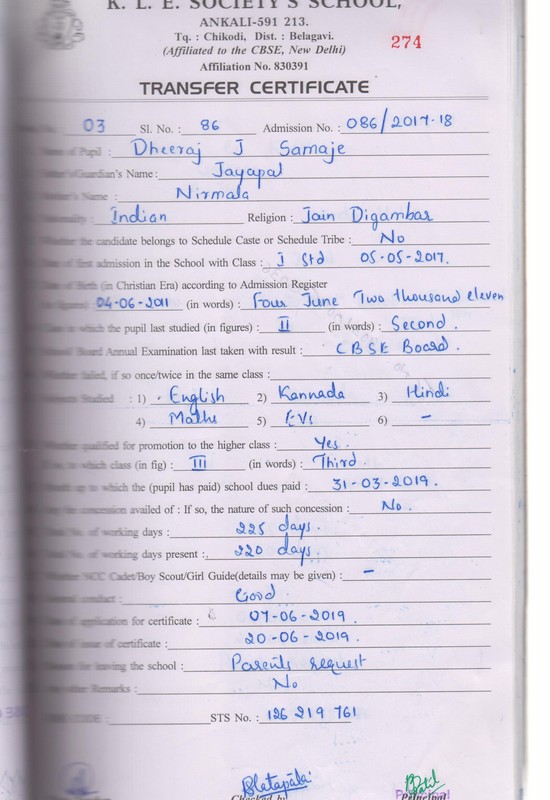 K. L. E. SOCIETY'S SCHOOL,
ANKALI-591 213.
Tq. : Chikodi, Dist. : Belagavi.
(Affiliated to the CBSE, New Delhi)
274
Affiliation No. 830391
TRANSFER CERTIFICATE
03 Sl. No. : 86 Admission No. : 086/2017-18
Name of Pupil : Dheeraj J Samaje
Guardian's Name : Jayapal
Name : Nirmala
Indian Religion : Jain Digambar
Whether the candidate belongs to Schedule Caste or Schedule Tribe : No
Date of first admission in the School with Class : I Std 05-05-2017.
Date of Birth (in Christian Era) according to Admission Register
04-06-2011 (in words) : Four June Two thousand eleven
in which the pupil last studied (in figures) : II (in words) : Second.
Board Annual Examination last taken with result : CBSE Board.
Whether failed, if so once/twice in the same class :
Studied : 1) English 2) Kannada 3) Hindi
4) Maths 5) EVs 6) –
Whether qualified for promotion to the higher class : Yes.
to which class (in fig) : III (in words) : Third.
up to which the (pupil has paid) school dues paid : 31-03-2019.
concession availed of : If so, the nature of such concession : No.
No. of working days : 225 days.
No. of working days present : 220 days.
Whether NCC Cadet/Boy Scout/Girl Guide(details may be given) : –
conduct : Good.
of application for certificate : 07-06-2019.
of issue of certificate : 20-06-2019.
for leaving the school : Parents request
Remarks : No
CODE : STS No. : 126 219 761
Checked by Principal